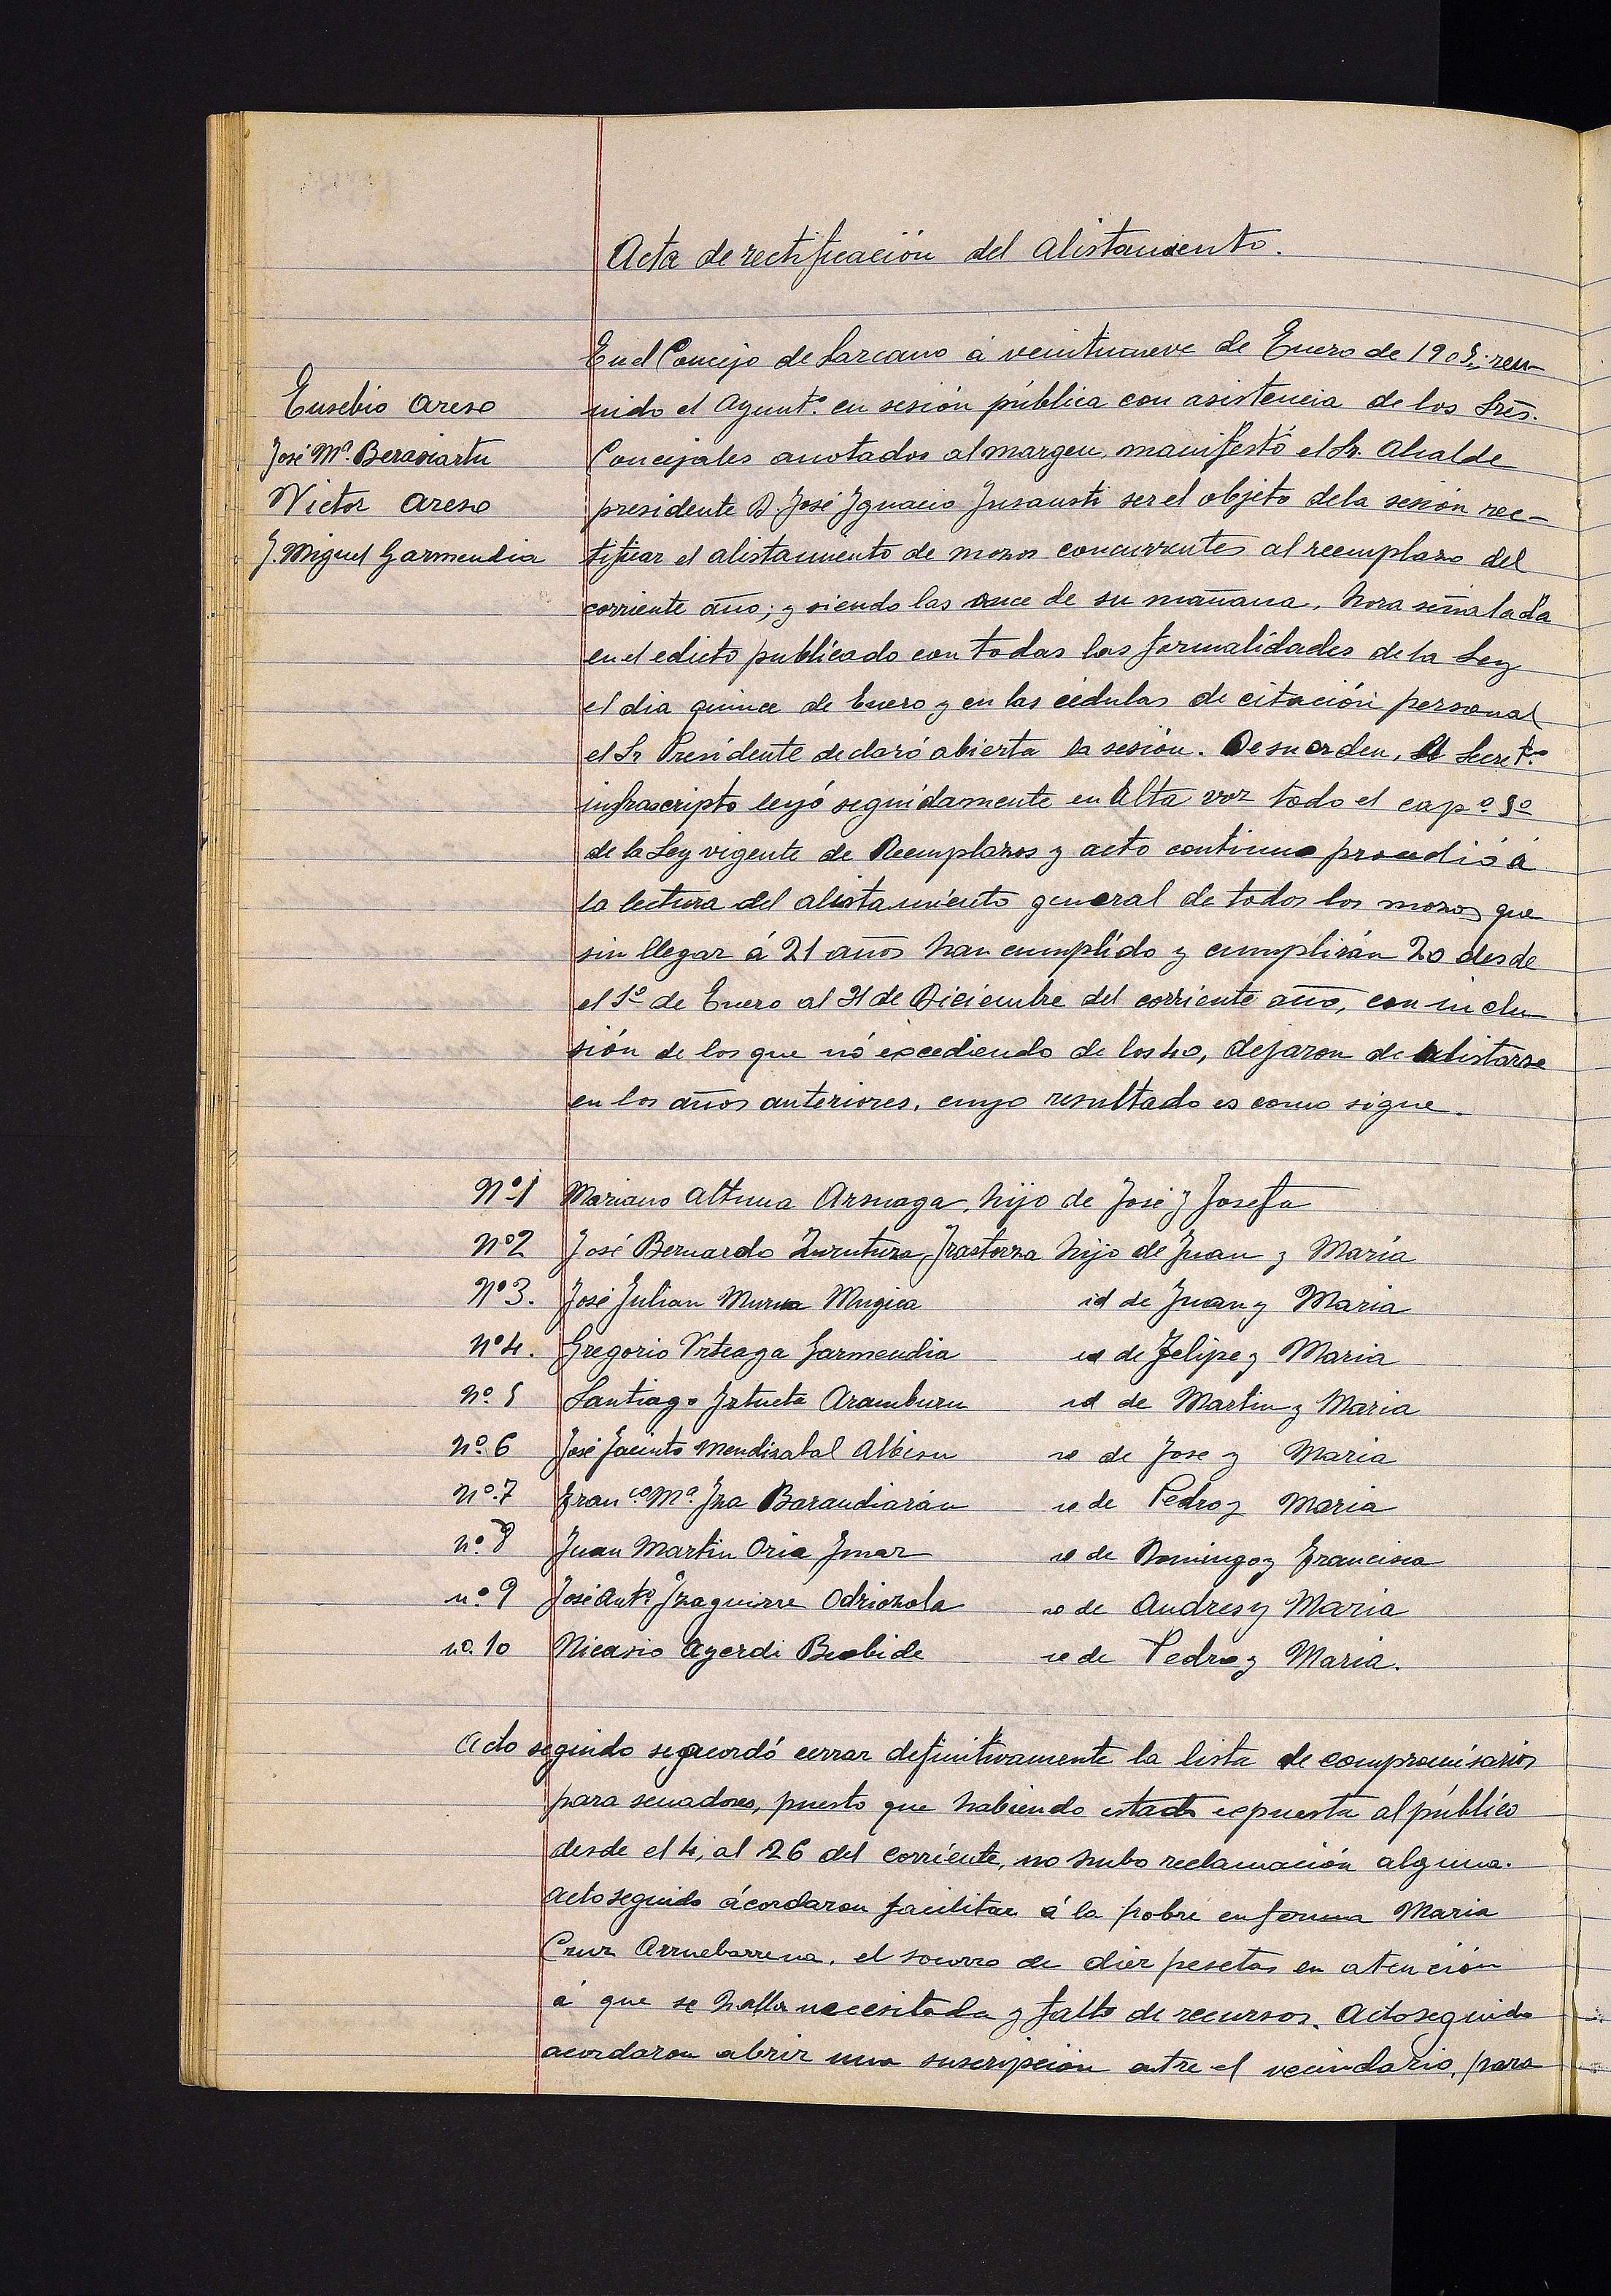 Acta de rectificación del alistamiento.
En el Concejo de Lazcano á veintinueve de Enero de 1905; reu-
Eusebio Areso
nido el Ayunt.º en sesión pública con asistencia de los Sres.
José Mª. Berasiartu
Concejales anotados al margen, manifestó el Sr. Alcalde
Victor Areso
presidente D. José Ygnacio Insausti ser el objeto de la sesión rec-
J. Miguel Garmendia
tificar el alistamiento de mozos concurrentes al reemplazo del
corriente año; y siendo las once de su mañana, hora señalada
en el edicto publicado con todas las formalidades de la Ley
el dia quince de Enero y en las cédulas de citación personal
el Sr Presidente declaró abierta la sesión. De su orden, el Secretº
infrascripto leyó seguidamente en alta voz todo el capº 5º
de la Ley vigente de Reemplazos y acto continuo procedió á
la lectura del alistamiento general de todos los mozos que
sin llegar á 21 años han cumplido y cumplirán 20 desde
el 1º de Enero al 31 de Diciembre del corriente año, con inclu
sión de los que nó excediendo de los 40, dejaron de alistarse
en los años anteriores, cuyo resultado es como sigue.
Nº 1 Mariano Altuna Arsuaga, hijo de José y Josefa
Nº 2 José Bernardo Zurutuza Irastorza hijo de Juan y María
Nº 3. José Julian Murua Mugica id de Juan y Maria
Nº 4. Gregorio Urteaga Garmendia id de Felipe y Maria
Nº. 5 Santiago Iztueta Aramburu id de Martin y Maria
Nº. 6 José Jacinto Mendizabal Albisu id de Jose y Maria
Nº. 7 Francº Mª. Iza Barandiarán id de Pedro y Maria
nº. 8 Juan Martin Oria Imaz id de Domingo y Francisca
nº 9 José Antº Izaguirre Odriozola id de Andres y Maria
nº. 10 Nicasio Ayerdi Beobide id de Pedro y Maria.
Acto seguido se acordó cerrar definitivamente la lista de compromisarios
para senadores, puesto que habiendo estado expuesta al público
desde el 4, al 26 del corriente, no hubo reclamación alguna.
Acto seguido ácordaron facilitar á la pobre enferma Maria
Cruz Arruebarrena, el socorro de diez pesetas en atención
á que se halla necesitada y falta de recursos. Acto seguido
acordaron abrir una suscripción entre el vecindario, para